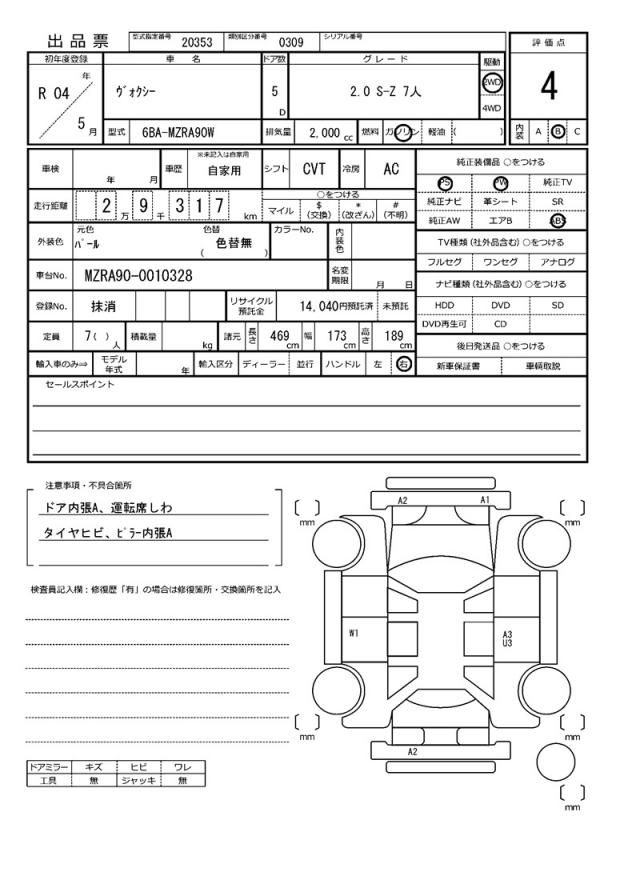 出品票 型式指定番号 20353 類別区分番号 0309 シリアル番号
評価点
初年度登録 車名 ドア数 グレード 駆動
R 04 年 5 月
ヴォクシー 5 D 2.0 S-Z 7人 2WD 4WD
4
型式 6BA-MZRA90W 排気量 2,000 cc 燃料 ガソリン 軽油 ( )
内装 A B C
車検 年 月 車歴 ※未記入は自家用 自家用 シフト CVT 冷房 AC
純正装備品 ○をつける
PS PW 純正TV
純正ナビ 革シート SR
純正AW エアB ABS
走行距離 2 万 9 千 3 1 7 km
○をつける
マイル $ (交換) * (改ざん) # (不明)
外装色 元色 パール 色替 色替無 ( ) カラーNo. 内装色
TV種類 (社外品含む) ○をつける
フルセグ ワンセグ アナログ
車台No. MZRA90-0010328 名変期限 月 日
ナビ種類 (社外品含む) ○をつける
HDD DVD SD
DVD再生可 CD
登録No. 抹消 リサイクル預託金 14,040円預託済 未預託
定員 7( ) 人 積載量 kg 諸元 長さ 469 cm 幅 173 cm 高さ 189 cm
後日発送品 ○をつける
新車保証書 車輌取説
輸入車のみ⇒ モデル年式 年 輸入区分 ディーラー 並行 ハンドル 左 右
セールスポイント
注意事項・不具合箇所
ドア内張A、運転席しわ
タイヤヒビ、ピラー内張A
検査員記入欄：修復歴「有」の場合は修復箇所・交換箇所を記入
ドアミラー キズ ヒビ ワレ
工具 無 ジャッキ 無
A2 A1
[ ] mm [ ] mm
W1
A3
U3
[ ] mm [ ] mm
A2
[ ] mm